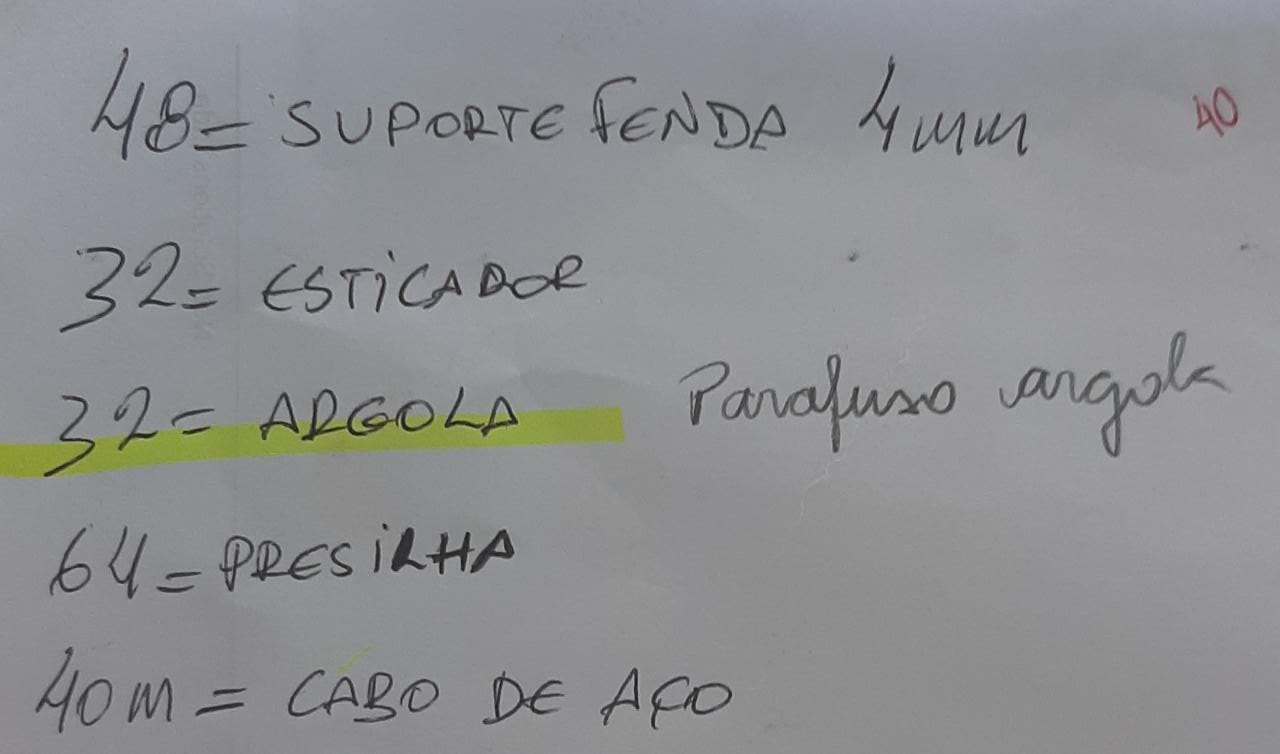 48= SUPORTE FENDA 4mm 40
32= ESTICADOR
32= ARGOLA Parafuso argola
64= PRESILHA
40M= CABO DE AÇO